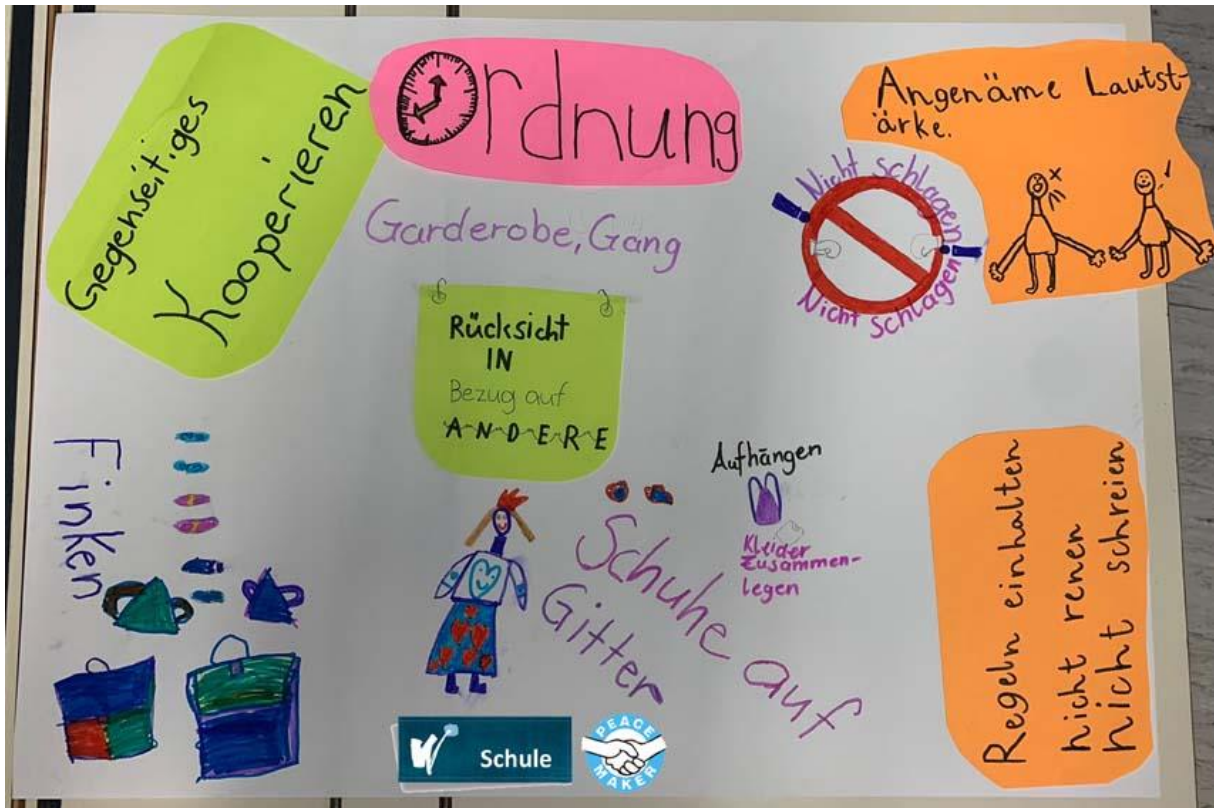 Gegenseitiges
Kooperieren
Ordnung
Angenäme Lautst-
ärke.
Garderobe, Gang
Nicht schlagen
Nicht schlagen
Rücksicht
IN
Bezug auf
A-N-D-E-R-E
Finken
Schuhe auf
Gitter
Aufhängen
Kleider
Zusammen-
legen
Regeln einhalten
nicht renen
nicht schreien
Schule
PEACE
MAKER